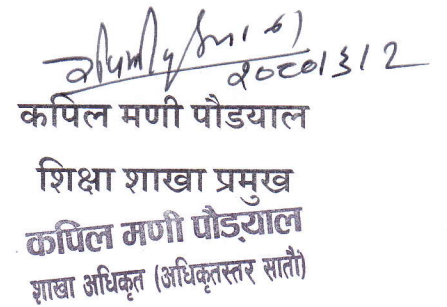 २०८०।३।२
कपिल मणी पौडयाल
शिक्षा शाखा प्रमुख
कपिल मणी पौड्याल
शाखा अधिकृत (अधिकृतस्तर सातौं)